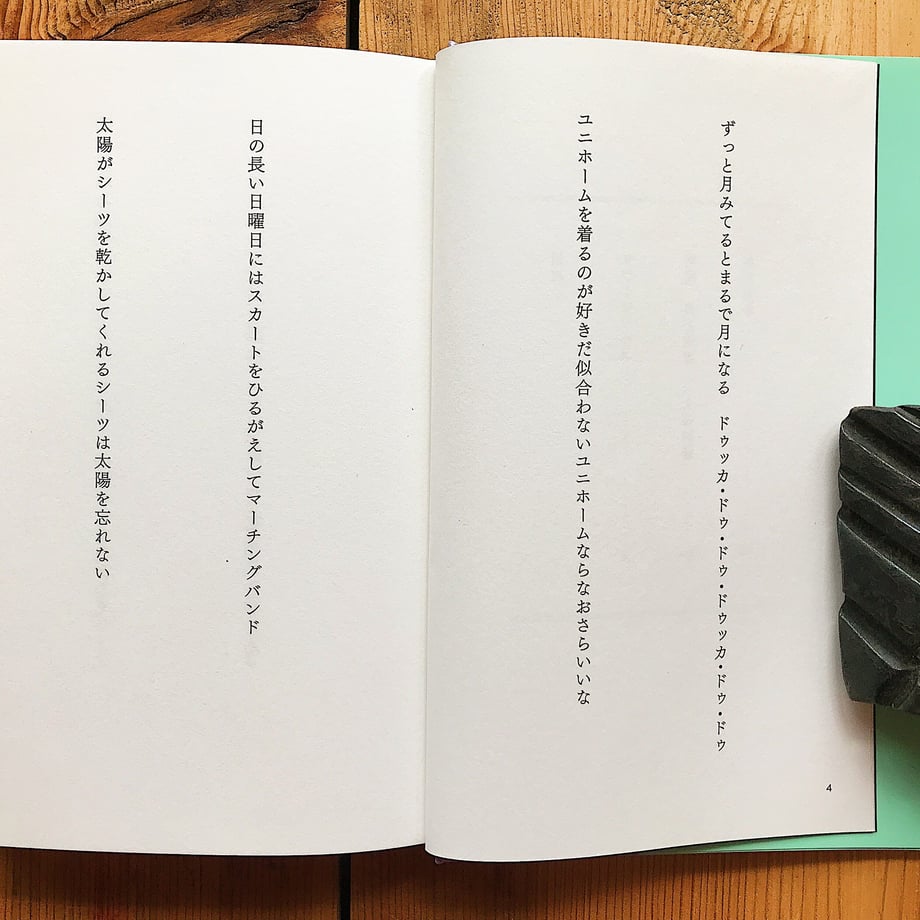 ずっと月みてるとまるで月になる　ドゥッカ・ドゥ・ドゥ・ドゥッカ・ドゥ・ドゥ
ユニホームを着るのが好きだ似合わないユニホームならなおさらいいな
4
日の長い日曜日にはスカートをひるがえしてマーチングバンド
太陽がシーツを乾かしてくれるシーツは太陽を忘れない